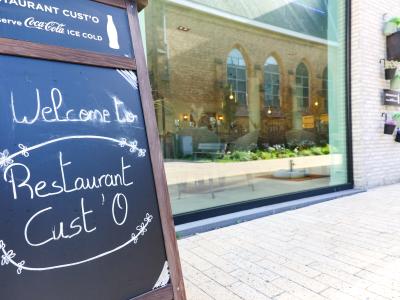 STAURANT CUST'O
serve Coca-Cola ICE COLD
Welcome to
Restaurant
Cust'O